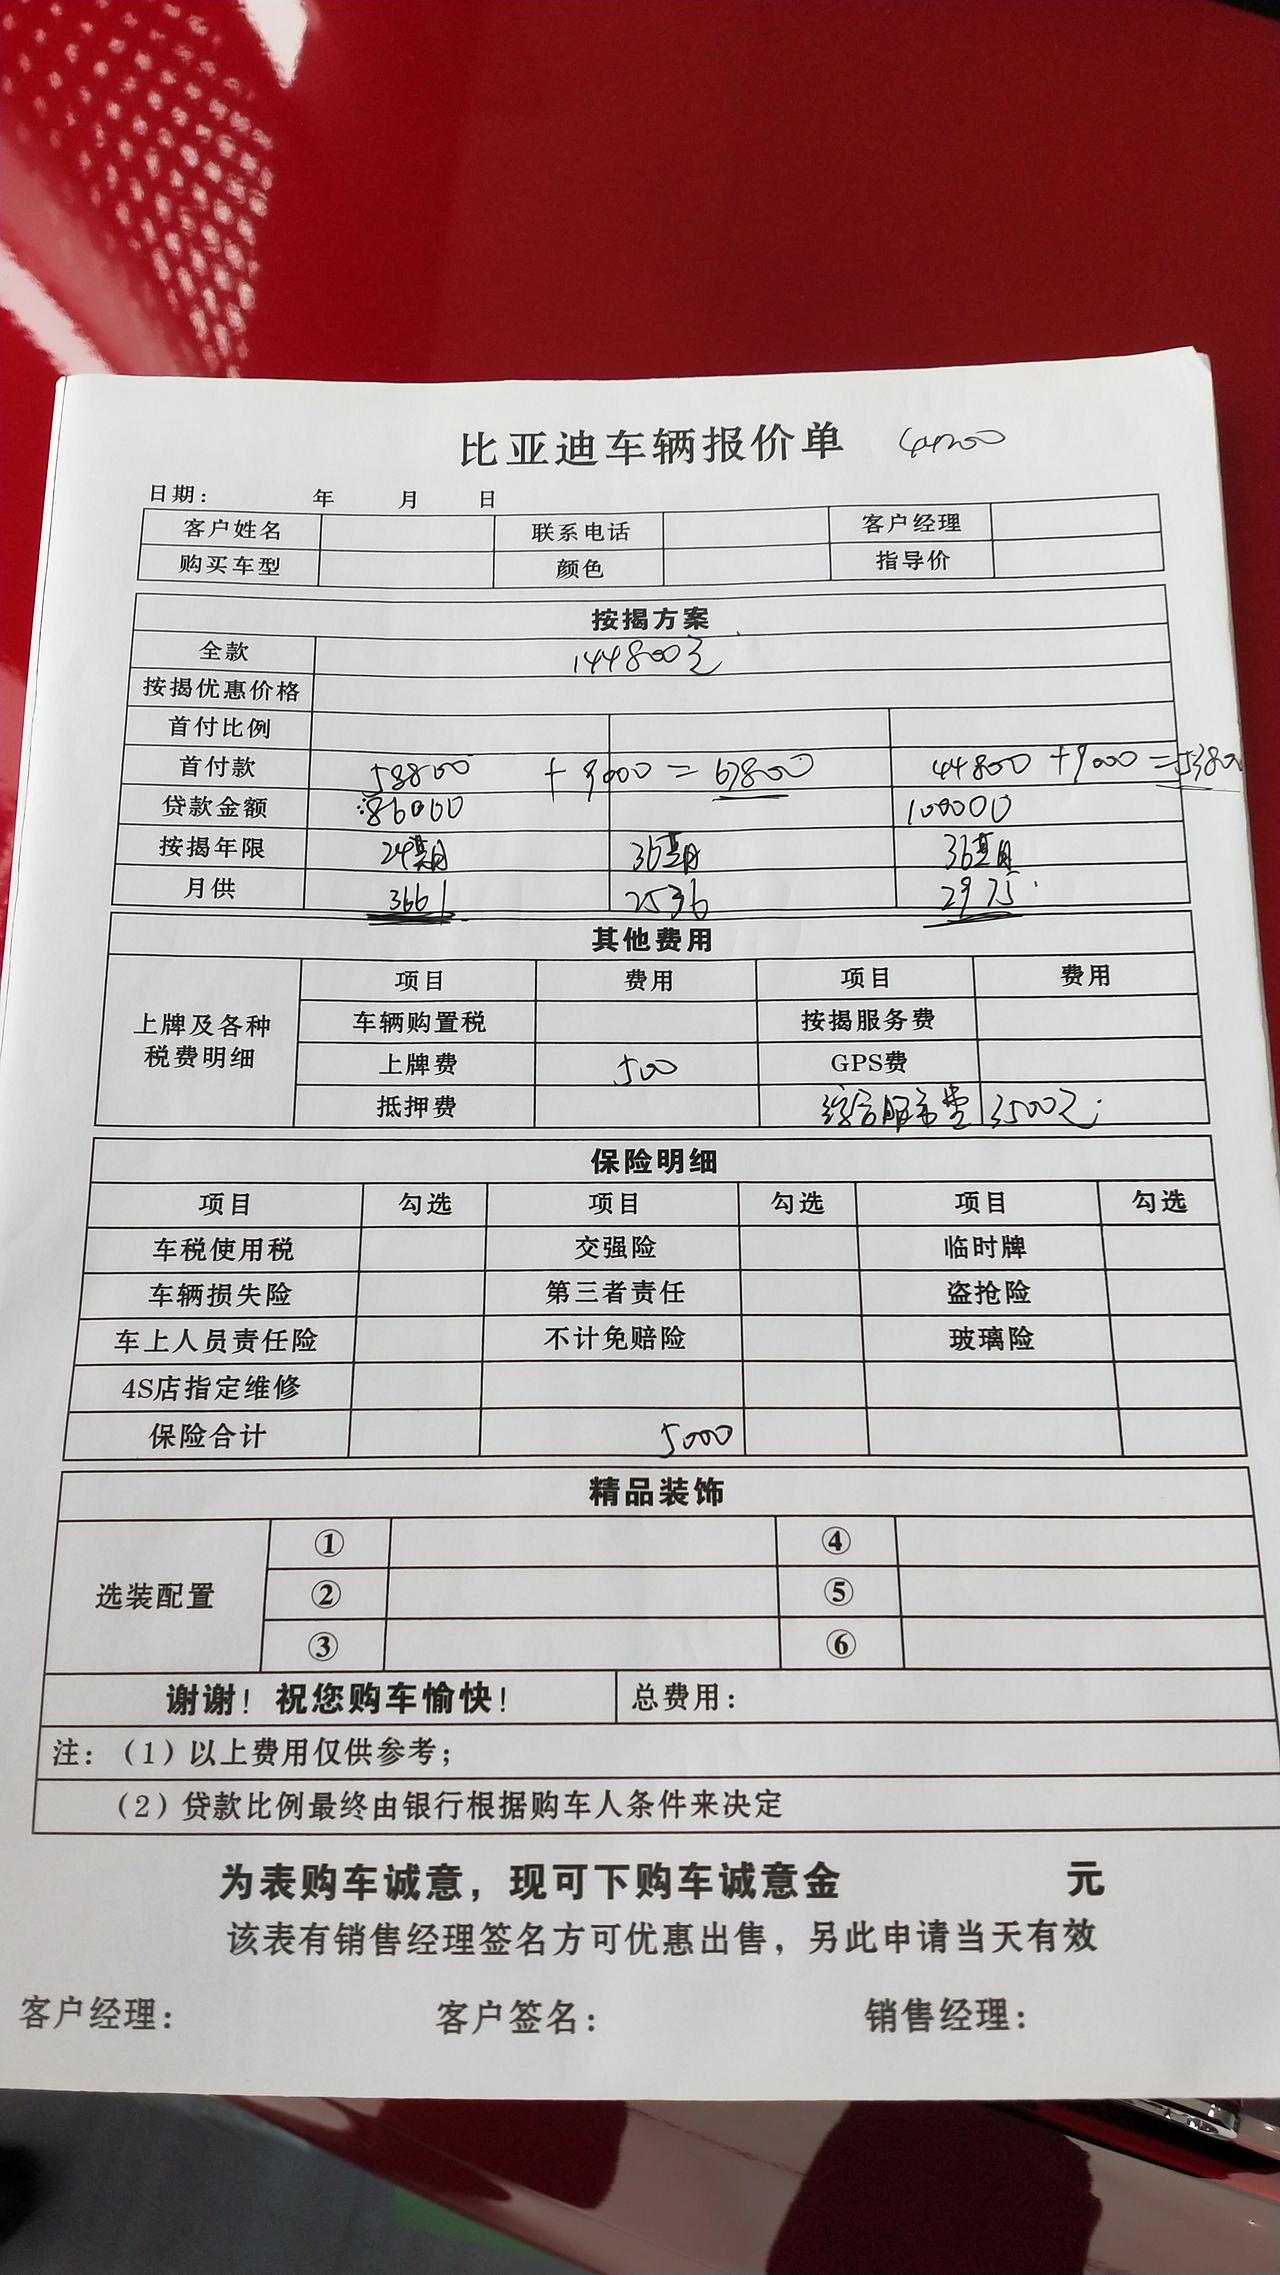 比亚迪车辆报价单
日期： 年 月 日
客户姓名 联系电话 客户经理
购买车型 颜色 指导价
按揭方案
全款 144800元
按揭优惠价格
首付比例
首付款 58800 +9000=67800 44800+9000=53800
贷款金额 86000 100000
按揭年限 24期 36期 36期
月供 3661 2536 2975
其他费用
上牌及各种税费明细 项目 费用 项目 费用
车辆购置税 按揭服务费
上牌费 500 GPS费
抵押费 综合服务费 3500元
保险明细
项目 勾选 项目 勾选 项目 勾选
车税使用税 交强险 临时牌
车辆损失险 第三者责任 盗抢险
车上人员责任险 不计免赔险 玻璃险
4S店指定维修
保险合计 5000
精品装饰
选装配置 ① ④
② ⑤
③ ⑥
谢谢！祝您购车愉快！ 总费用：
注：（1）以上费用仅供参考；
（2）贷款比例最终由银行根据购车人条件来决定
为表购车诚意，现可下购车诚意金 元
该表有销售经理签名方可优惠出售，另此申请当天有效
客户经理： 客户签名： 销售经理：